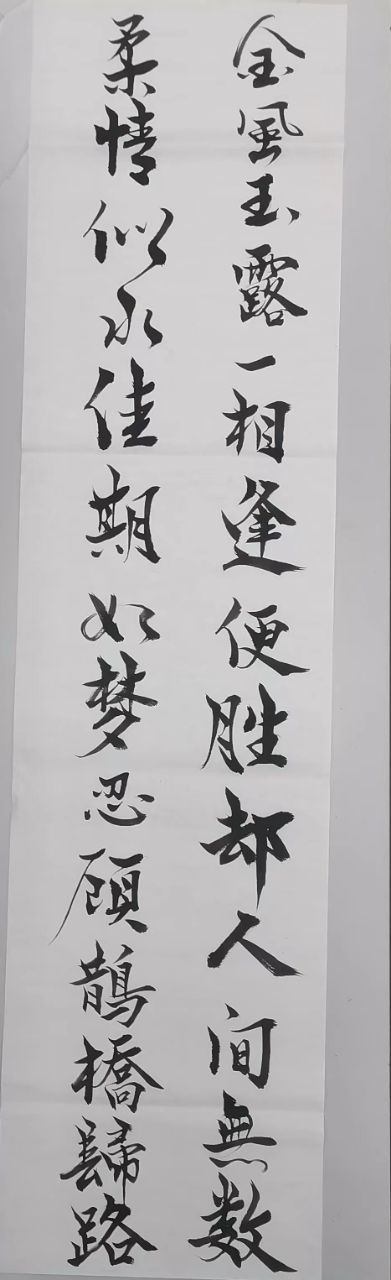 金風玉露一相逢便胜却人间無数
柔情似水佳期如梦忍顾鹊橋歸路